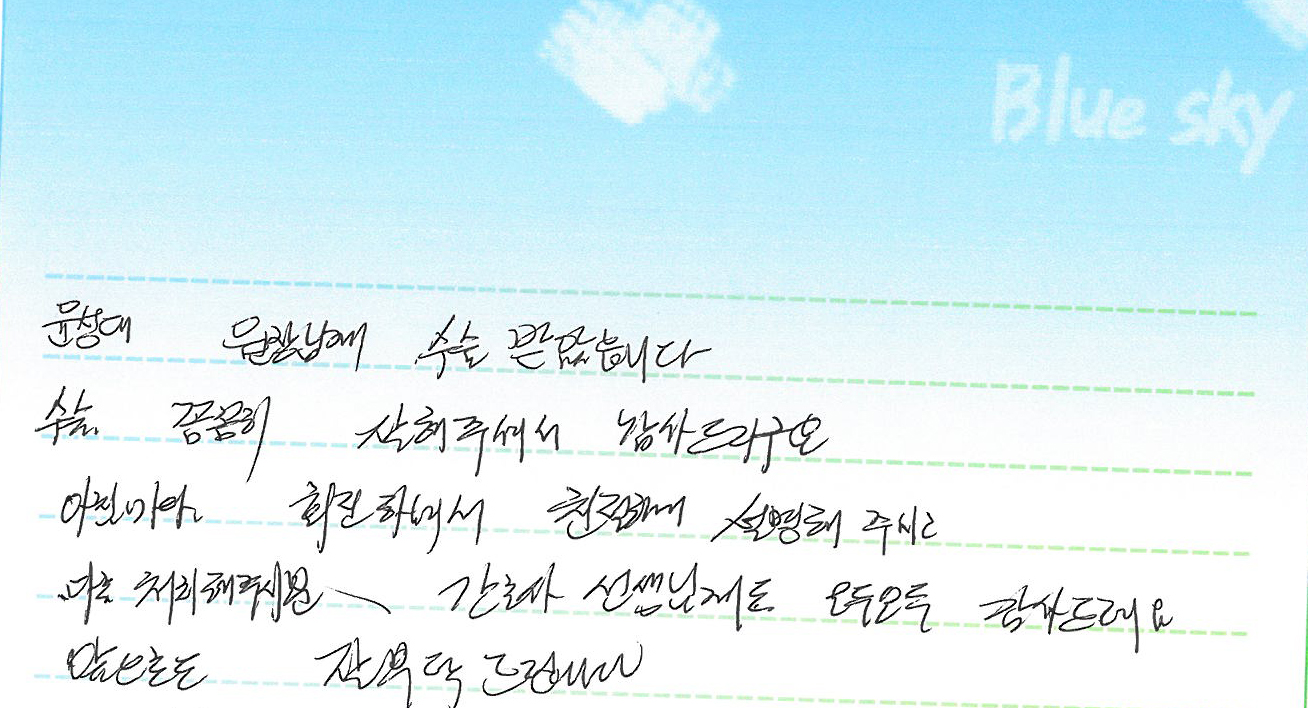 Blue sky
윤성대 원장님께 수술 받았습니다
수술 꼼꼼히 잘해주셔서 감사드리구요
아침마다 회진하면서 친절하게 설명해 주시고
바로 처리해주시는 간호사 선생님께도 모두모두 감사드려요
앞으로도 잘 부탁 드립니다